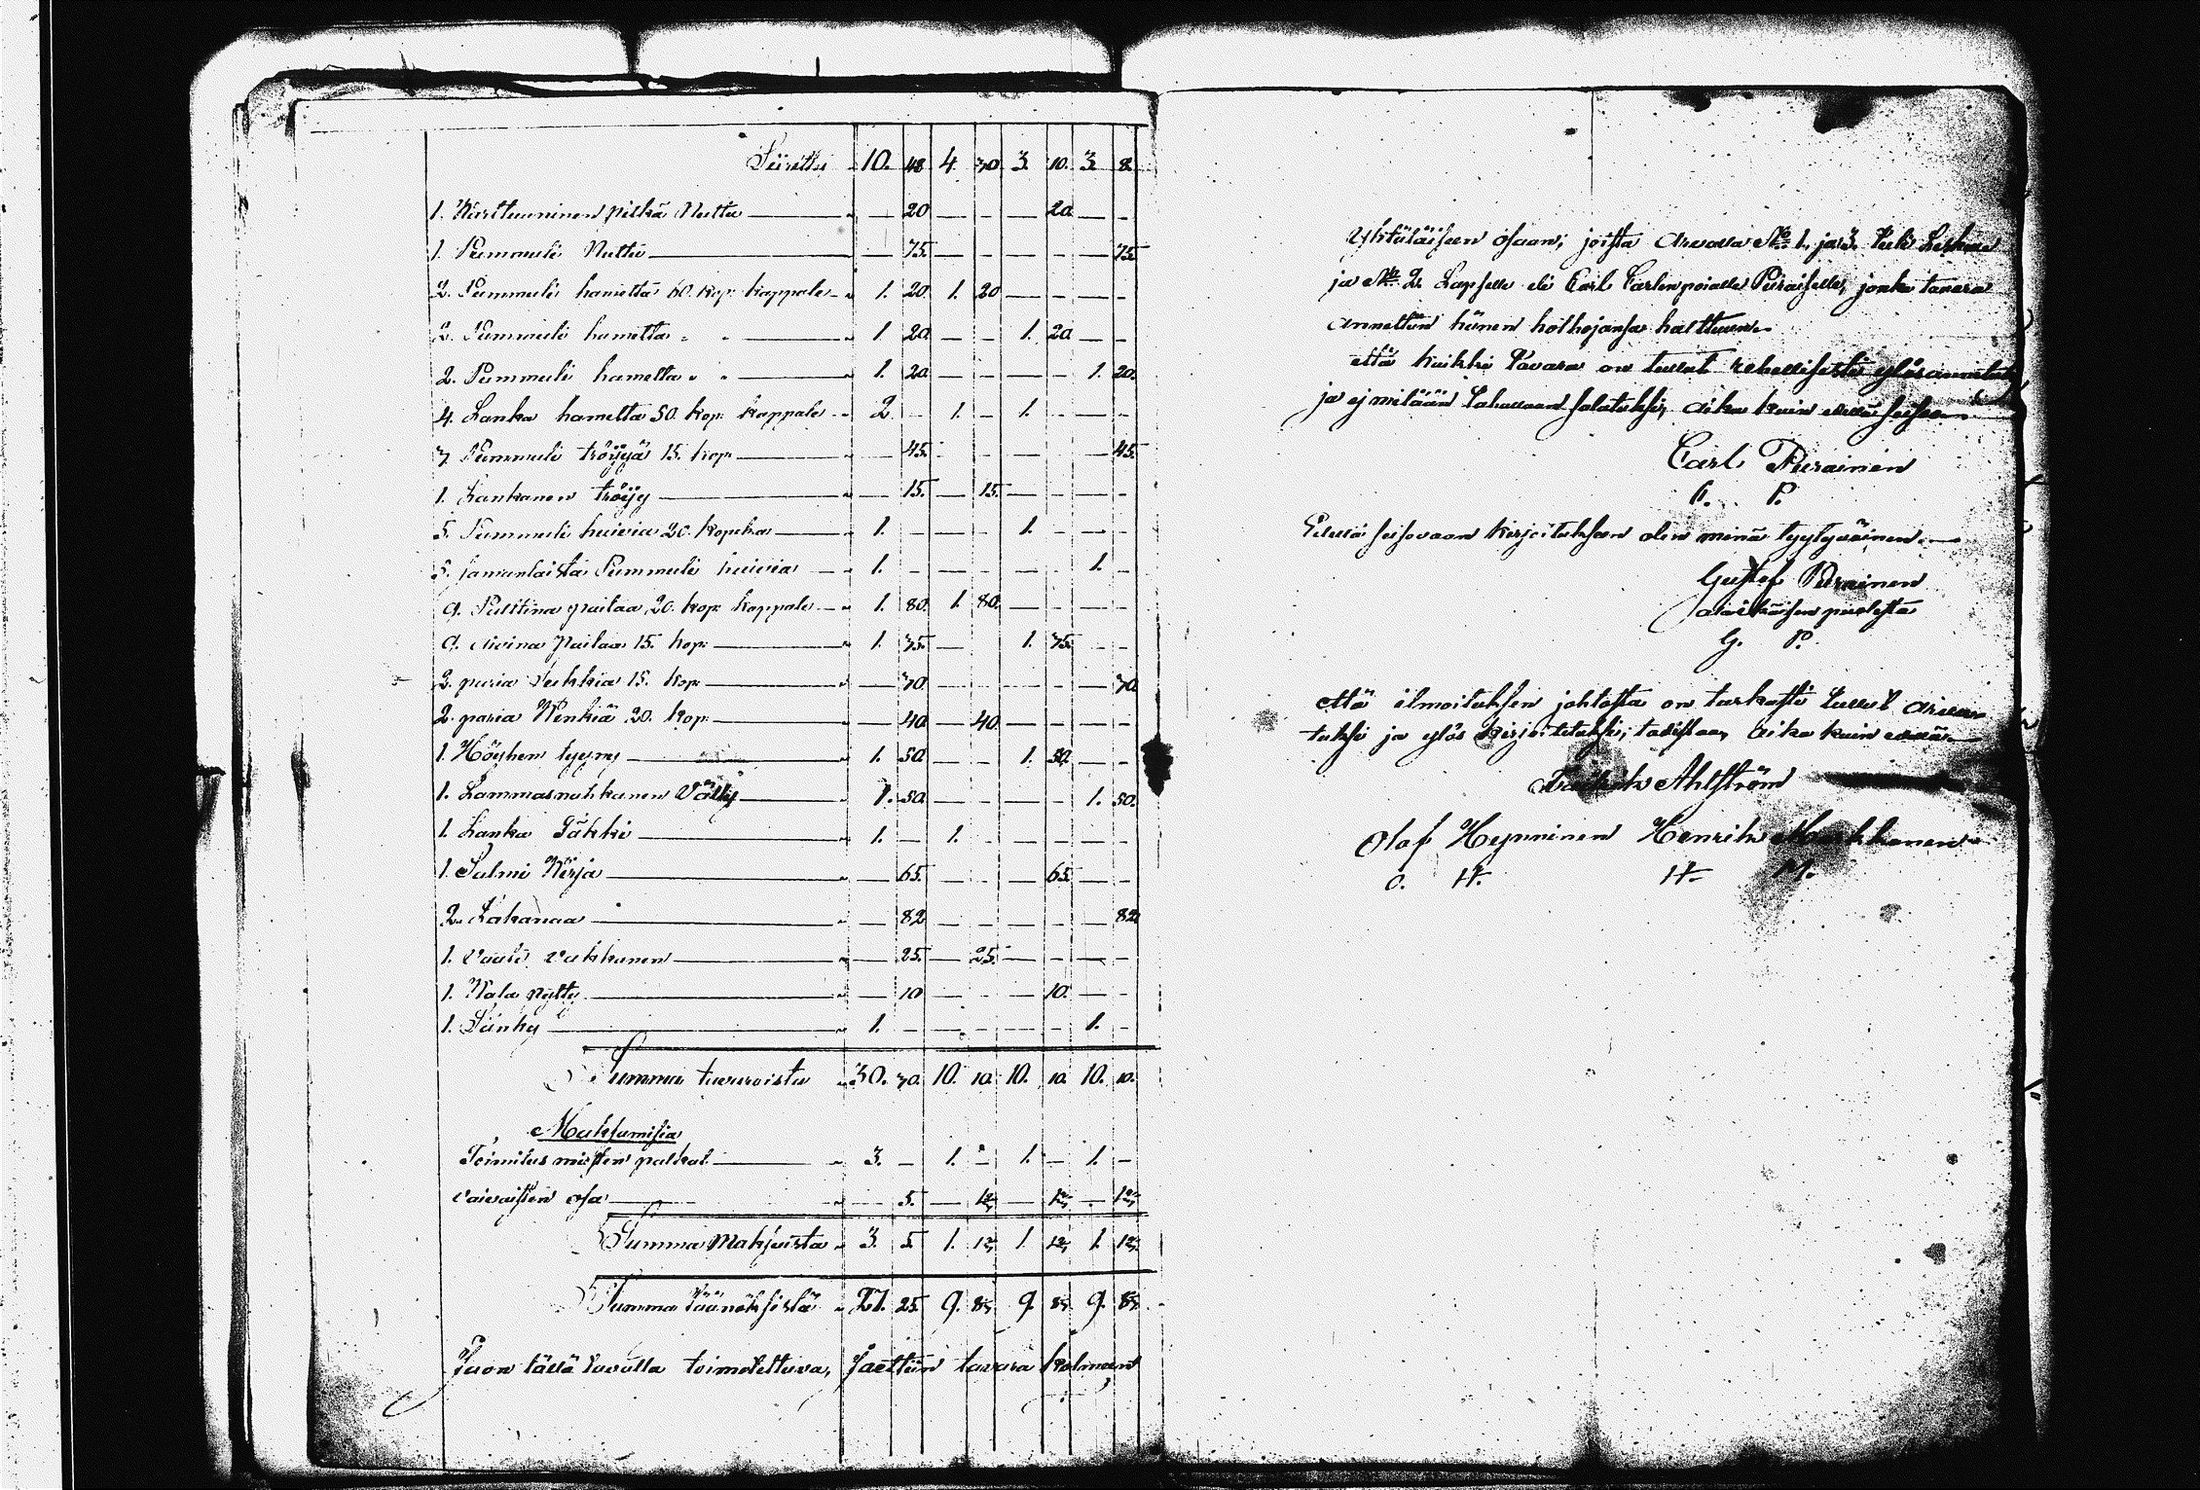 Siirettu " 10. 48 4 70. 3. 10. 3. 8.
1. Karttuuninen pitkä Nuttu " — 20 — - — 20. — -
1. Pummuli Nuttu " — 75. — - — - — 75.
2. Pummuli hametta 60. kop: kappale " 1. 20 1. 20 — - — -
2. Pummuli hametta " " " 1. 20. — - 1. 20. — -
2. Pummuli hametta " " " 1. 20 — - — - 1. 20.
4. Lanka hametta 50. kop: kappale " 2. - 1. - 1. - — -
3 Pummuli tröijyä 15. kop: " — 45. - - — - — 45.
1. Lankanen tröijy " — 15. — 15. — - — -
5. Pummuli huivia 20. kopeka " 1. - — - 1. - — -
5. samanlaista Pummuli huivia " 1. - — - — - 1. -
9. Palttina paitaa 20. kop: kappale " 1. 80. 1. 80. — - — -
9. Aivina Paitaa 15. kop: " 1. 75. — 1. 75. - -
2. paria Sukkia 15. kop: " — 70. — - — - — 70.
2. paria Kenkiä 20. kop: " — 40 — 40. — - — -
1. Höyhen tyyny " 1. 50. — - 1. 50. — -
1. Lammasnahkanen Vällÿ " 1. 50. — - — - 1. 50.
1. Lanka Täkki " 1. — 1. - — - — -
1. Salmi Kirja " — 65. — - — 65. — -
2. Lakanaa " — 82 — - — - — 82.
1. Vaate Vakkanen " — 25. — 25. — - — -
1. Kala Nytty " — 10 — - — 10. — -
1. Sänky " 1. - — - — - 1. -
Summa tavaroista " 30. 70. 10. 10. 10. 10. 10. 10.
Maksamisia
Toimitus miesten palkat " 3. — 1. - 1. — 1. -
vaivaisten osa " — 5. — 1 2/3 — 1 2/3 — 1 2/3
Summa Maksuista " 3. 5. 1. 1 2/3 1. 1 2/3 1. 1 2/3
Summa Täänöksistä " 27. 25. 9. 8 1/3 9. 8 1/3 9. 8 1/3
Jaon tällä tavalla toimitettuva, Jaettiin tavara kolmeen
Yhtäläiseen osaan; joista Arvalla No 1. ja 3. tuli Leskelle
ja No 2. Lapselle eli Carl Carlenpoialle Piiraiselle, jonka tavara
annettiin hänen holhojansa halttuun.
että kaikki Tavara on tullut rehellisesti ylösannetuksi
ja ej mitään tahallaan salatuksi, aika kuin edellä seisoo
Carl Piirainen
C. P.
Edellä seisovaan kirjoitukseen olen minä tyytyväinen.
Gustof Piirainen
alaikäisen puolesta
G. P.
että ilmoituksen johtosta on tarkasti tullut arvatuksi
ja ylös kirjoitetuksi; todistaan, Aika kuin edellä
Ahlström
Olof Hynninen Henrik Markkanen
O. H. H. M.